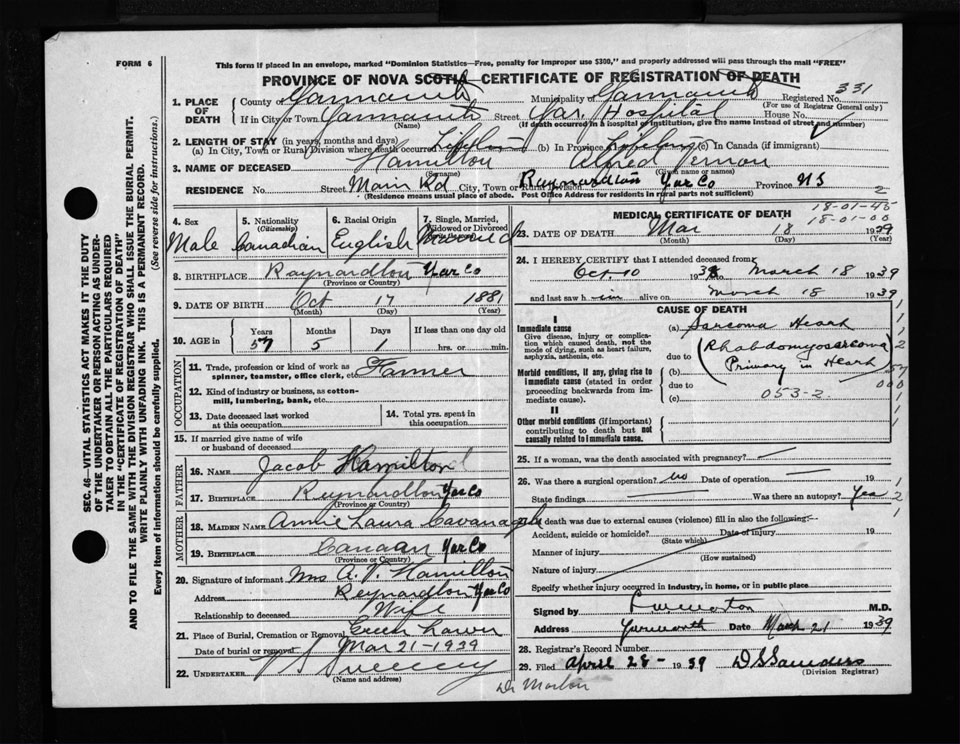 FORM 6
This form if placed in an envelope, marked "Dominion Statistics—Free, penalty for improper use $300," and properly addressed will pass through the mail "FREE"
PROVINCE OF NOVA SCOTIA—CERTIFICATE OF REGISTRATION OF DEATH
1. PLACE OF DEATH
County of Yarmouth Municipality of Yarmouth Registered No. 331
(For use of Registrar General only)
If in City or Town Yarmouth Street Yar. Hospital House No.
(Name) (If death occurred in a hospital or institution, give the name instead of street and number)
2. LENGTH OF STAY (in years, months and days)
(a) In City, Town or Rural Division where death occurred Lifelong (b) In Province Lifelong (c) In Canada (if immigrant)
3. NAME OF DECEASED Hamilton Alfred Vernon
(Surname) (Given name or names)
RESIDENCE No. Street Main Rd City, Town or Rural Division Raynardton Yar Co Province NS
(Residence means usual place of abode. Post Office Address for residents in rural parts not sufficient)
2
4. Sex Male
5. Nationality (Citizenship) Canadian
6. Racial Origin English
7. Single, Married, Widowed or Divorced Married
8. BIRTHPLACE Raynardton Yar Co
(Province or Country)
9. DATE OF BIRTH Oct 17 1881
(Month) (Day) (Year)
10. AGE in Years 57 Months 5 Days 1 If less than one day old hrs. or min.
OCCUPATION
11. Trade, profession or kind of work as spinner, teamster, office clerk, etc. Farmer
12. Kind of industry or business, as cotton-mill, lumbering, bank, etc.
13. Date deceased last worked at this occupation
14. Total yrs. spent in this occupation
15. If married give name of wife or husband of deceased
FATHER
16. NAME Jacob Hamilton
17. BIRTHPLACE Reynardton Yar Co
(Province or Country)
MOTHER
18. MAIDEN NAME Annie Laura Cavanagh
19. BIRTHPLACE Canaan Yar Co
(Province or Country)
20. Signature of informant Mrs A. V. Hamilton
Address Reynardton Yar Co
Relationship to deceased Wife
21. Place of Burial, Cremation or Removal Green Lawn
Date of burial or removal Mar 21-1939
22. UNDERTAKER V S Sweeney
(Name and address)
Dr Morton
MEDICAL CERTIFICATE OF DEATH
18-01-45
18-01-00
23. DATE OF DEATH Mar 18 1939
(Month) (Day) (Year)
24. I HEREBY CERTIFY that I attended deceased from
Oct. 10 1938 to March 18 1939
and last saw him alive on March 18 1939
CAUSE OF DEATH
I
Immediate cause
Give disease, injury or complication which caused death, not the mode of dying, such as heart failure, asphyxia, asthenia, etc.
(a) Sarcoma Heart
due to
Morbid conditions, if any, giving rise to immediate cause (stated in order proceeding backwards from immediate cause).
(b) Rhabdomyosarcoma Primary in Heart
due to
(c) 053-2
II
Other morbid conditions (if important) contributing to death but not causally related to immediate cause.
25. If a woman, was the death associated with pregnancy?
26. Was there a surgical operation? no Date of operation 19
State findings Was there an autopsy? Yes
27. If death was due to external causes (violence) fill in also the following:
Accident, suicide or homicide? Date of injury 19
(State which)
Manner of injury
(How sustained)
Nature of injury
Specify whether injury occurred in industry, in home, or in public place
Signed by L W Morton M.D.
Address Yarmouth Date March 21 1939
28. Registrar's Record Number
29. Filed April 28 - 1939 D S Saunders
(Division Registrar)
SEC. 46—VITAL STATISTICS ACT MAKES IT THE DUTY
OF THE UNDERTAKER OR PERSON ACTING AS UNDERTAKER TO OBTAIN ALL THE PARTICULARS REQUIRED
IN THE "CERTIFICATE OF REGISTRATION OF DEATH"
AND TO FILE THE SAME WITH THE DIVISION REGISTRAR WHO SHALL ISSUE THE BURIAL PERMIT.
WRITE PLAINLY WITH UNFADING INK. THIS IS A PERMANENT RECORD.
Every item of Information should be carefully supplied. (See reverse side for instructions.)